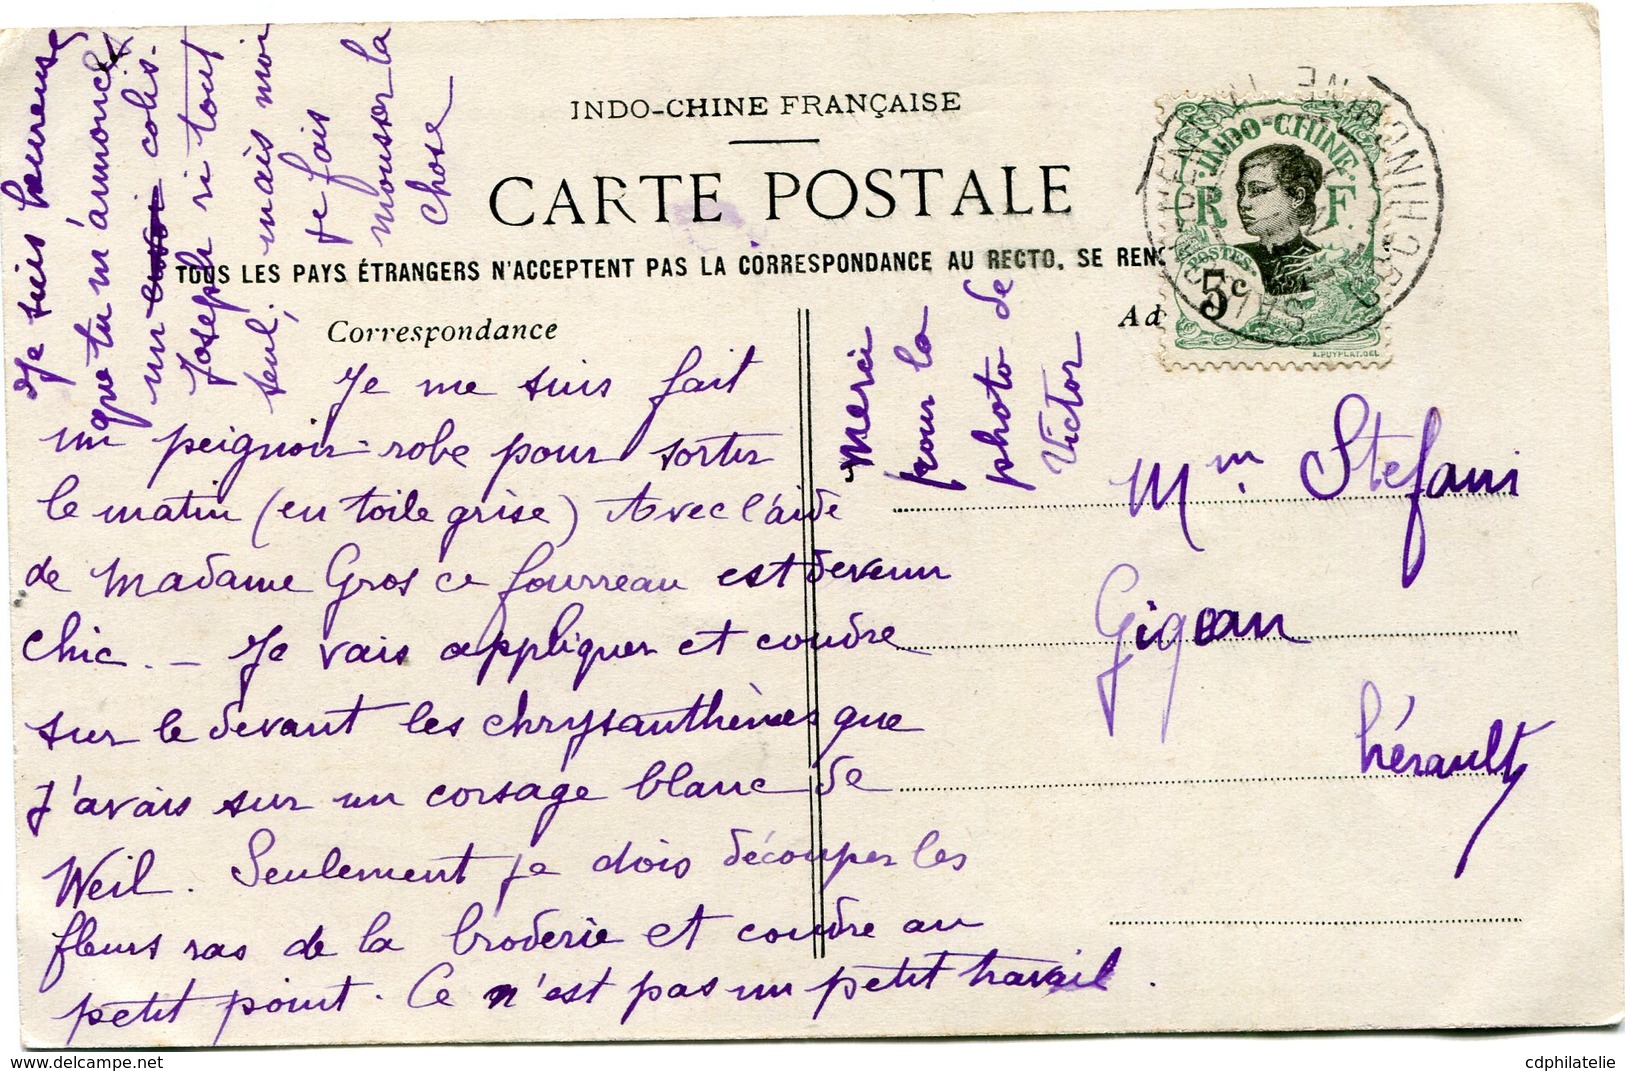 INDO-CHINE FRANÇAISE
CARTE POSTALE
TOUS LES PAYS ÉTRANGERS N'ACCEPTENT PAS LA CORRESPONDANCE AU RECTO, SE REN
Correspondance
Ad
INDO-CHINE
R F
POSTES
5c
A. PUYPLAT. DEL
Je me suis fait
un peignoir-robe pour sortir
le matin (en toile grise) Avec l'aide
de Madame Gros ce fourreau est devenu
chic. — Je vais appliquer et coudre
sur le devant les chrysanthèmes que
j'avais sur un corsage blanc de
Weil. Seulement je dois découper les
fleurs ras de la broderie et coudre au
petit point. Ce n'est pas un petit travail.
Je suis heureuse
que tu m'annonces
un colis.
Joseph rit tout
seul, mais moi
je fais
mousser la
chose
Merci
pour la
photo de
Victor
Mm Stefani
Gigean
hérault
cdphilatelie